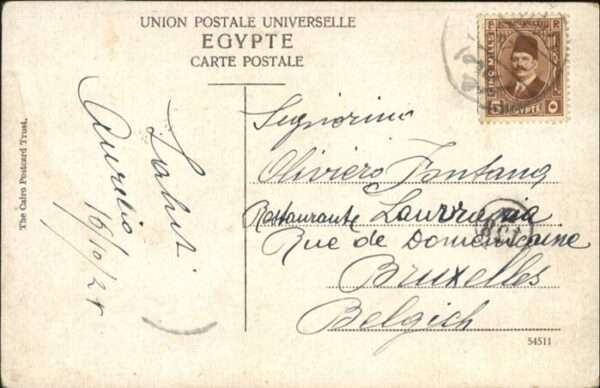 UNION POSTALE UNIVERSELLE
EGYPTE
CARTE POSTALE
The Cairo Postcard Trust.
Saluti
Aurelio
16/10/28
Signorino
Oliviero Fontana
Restaurante
Rue de Domenicaine
Bruxelles
Belgich
5
EGYPTE
٥
54511